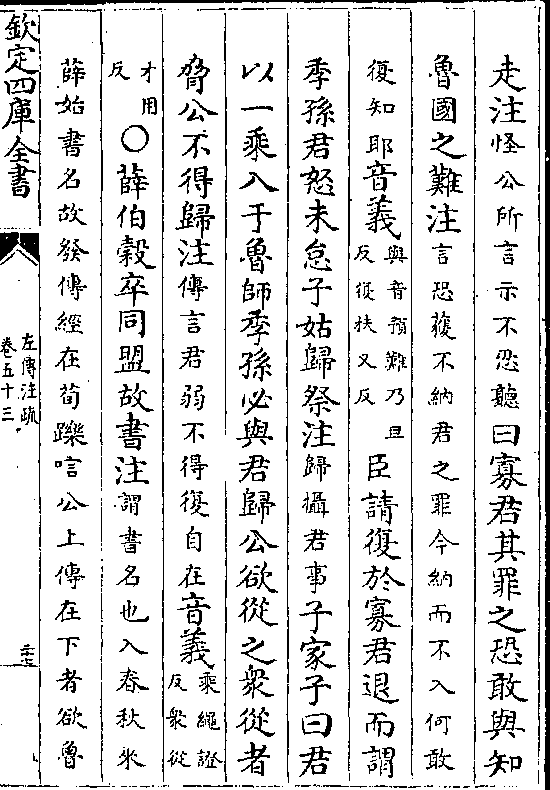 走注怪公所言示不忍聽曰寡君其罪之恐敢與知
魯國之難注言恐獲不納君之罪今納而不入何敢
復知耶音義與音預難乃旦反復扶又反臣請復於寡君退而謂
季孫君怒未怠子姑歸祭注歸攝君事子家子曰君
以一乘入于魯師季孫必與君歸公欲從之衆從者
脅公不得歸注傳言君弱不得復自在音義乘繩證反衆從
才用反○薛伯穀卒同盟故書注謂書名也入春秋來
薛始書名故發傳經在荀躒唁公上傳在下者欲魯
欽定四庫全書
左傳注疏
卷五十三